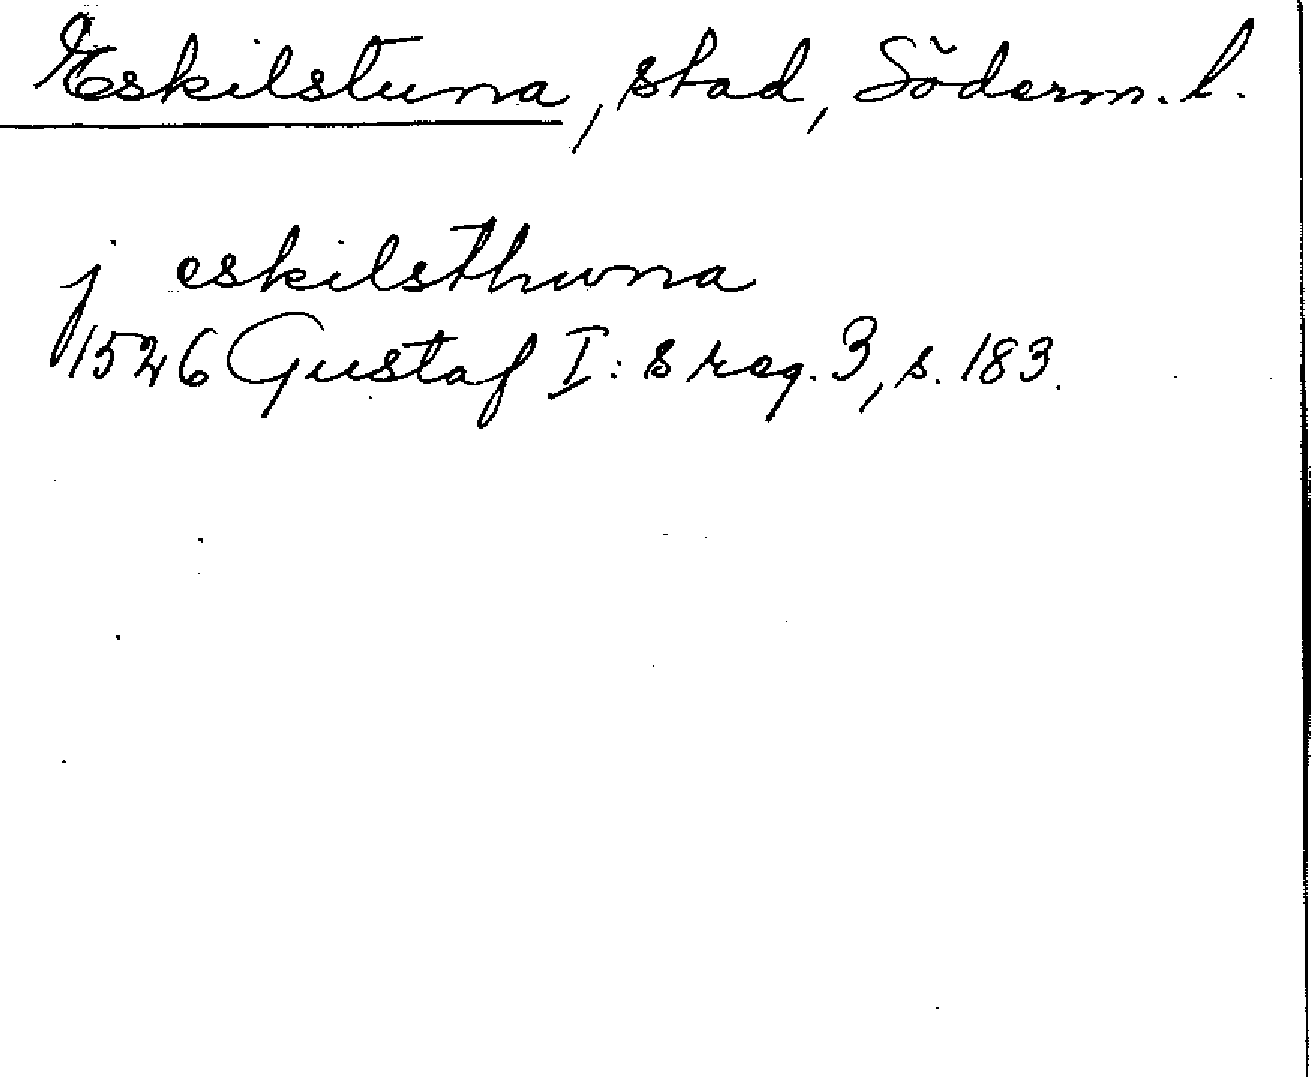 Eskilstuna, stad, Söderm. l.
j eskilsthuna
1526 Gustaf I:s reg. 3, s. 183.